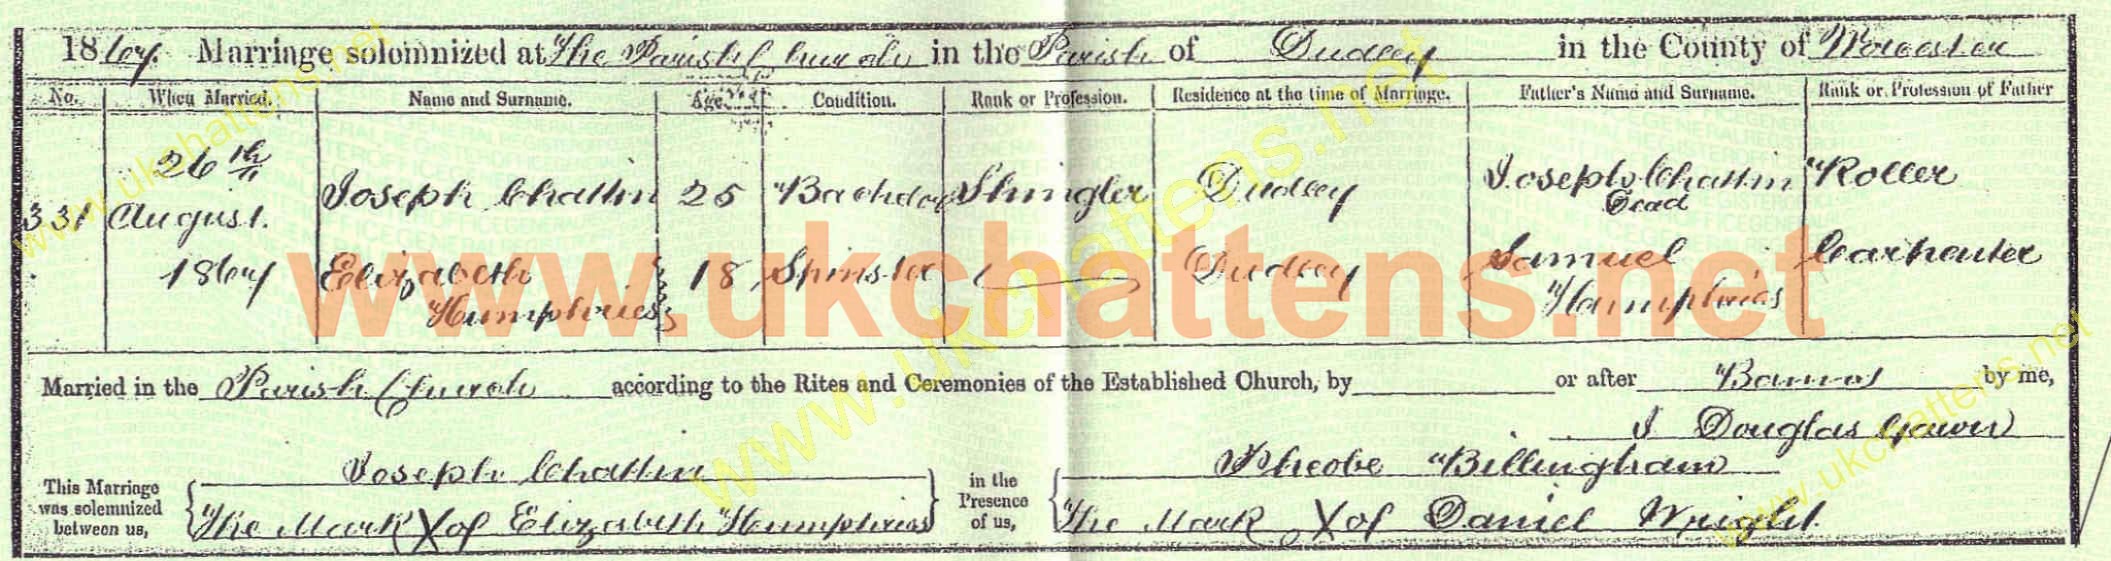 1867. Marriage solemnized at The Parish Church in the Parish of Dudley in the County of Worcester
No. When Married. Name and Surname. Age. Condition. Rank or Profession. Residence at the time of Marriage. Father's Name and Surname. Rank or Profession of Father
331 26th August. 1867 Joseph Chattin 25 Bachelor Shingler Dudley Joseph Chattin Dead Roller
Elizabeth Humphries 18 Spinster Dudley Samuel Humphries Carpenter
www.ukchattens.net
Married in the Parish Church according to the Rites and Ceremonies of the Established Church, by or after Banns by me,
J Douglas
This Marriage was solemnized between us, Joseph Chattin in the Presence of us, Pheobe Billingham
The Mark X of Elizabeth Humphries The Mark X of Daniel Wright.
www.ukchattens.net
www.ukchattens.net
www.ukchattens.net